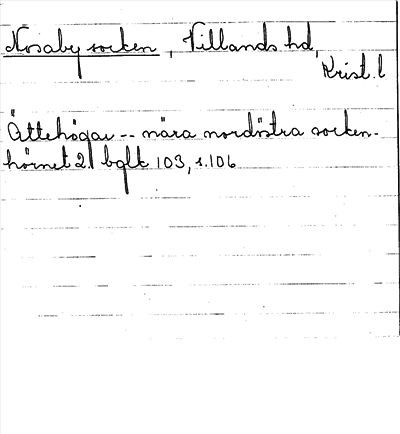 Nosaby socken, Villands hd,
Krist. l
Ättehögar -- nära nordöstra socken-
hörnet 21 bglt 103, s. 106